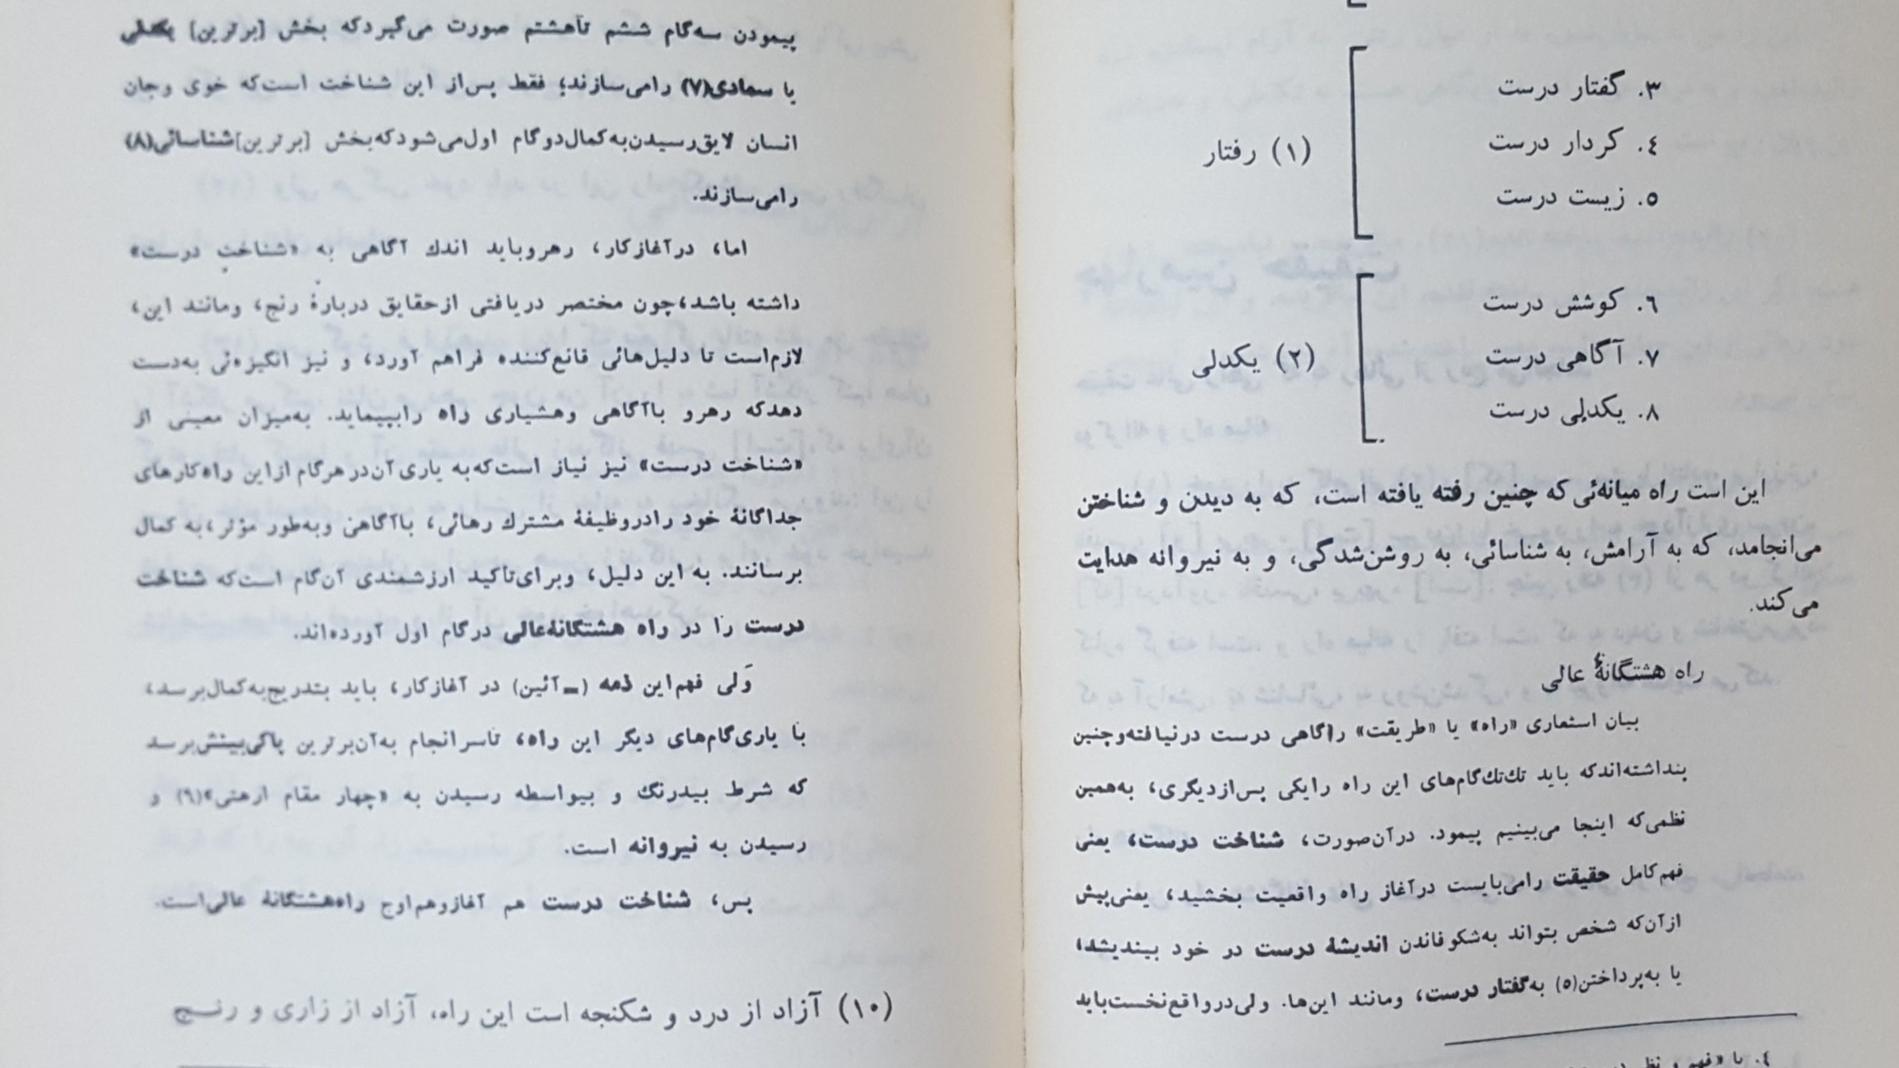 ۳. گفتار درست
٤. کردار درست
(۱) رفتار
۵. زیست درست
٦. کوشش درست
۷. آگاهی درست
(۲) یکدلی
۸. یکدلی درست
این است راه میانه‌ئی که چنین رفته یافته است، که به دیدن و شناختن
می‌انجامد، که به آرامش، به شناسائی، به روشن‌شدگی، و به نیروانه هدایت
می‌کند.
راه هشتگانهٔ عالی
بیان استعاری «راه» یا «طریقت» را گاهی درست درنیافته و چنین
پنداشته‌اند که باید تك‌تك گام‌های این راه را یکی پس از دیگری، به همین
نظمی که اینجا می‌بینیم پیمود. در آن صورت، شناخت درست، یعنی
فهم کامل حقیقت را می‌بایست در آغاز راه واقعیت بخشید، یعنی پیش
از آن که شخص بتواند به شکوفاندن اندیشهٔ درست در خود بیندیشد،
یا به پرداختن(۵) به گفتار درست، و مانند این‌ها. ولی در واقع نخست باید
٤. یا «فهم و نظر
پیمودن سه گام ششم تا هشتم صورت می‌گیرد که بخش [برترین] یکدلی
یا سمادی(۷) را می‌سازند؛ فقط پس از این شناخت است که خوی و جان
انسان لایق رسیدن به کمال دو گام اول می‌شود که بخش [برترین] شناسائی(۸)
را می‌سازند.
اما، در آغاز کار، رهرو باید اندك آگاهی به «شناختِ درست»
داشته باشد، چون مختصر دریافتی از حقایق دربارهٔ رنج، و مانند این،
لازم است تا دلیل‌هائی قانع‌کننده فراهم آورد، و نیز انگیزه‌ئی به دست
دهد که رهرو با آگاهی و هشیاری راه را بپیماید. به میزان معینی از
«شناخت درست» نیز نیاز است که به یاری آن در هر گام از این راه کارهای
جداگانهٔ خود را در وظیفهٔ مشترك رهائی، با آگاهی و به طور مؤثر، به کمال
برسانند. به این دلیل، و برای تأکید ارزشمندی آن گام است که شناخت
درست را در راه هشتگانهٔ عالی در گام اول آورده‌اند.
وَلی فهم این دمه (ـ آئین) در آغاز کار، باید بتدریج به کمال برسد،
با یاری گام‌های دیگر این راه، تا سرانجام به آن برترین پاکی بینش برسد
که شرط بیدرنگ و بیواسطه رسیدن به «چهار مقام ارهتی»(۹) و
رسیدن به نیروانه است.
پس، شناخت درست هم آغاز و هم اوج راه هشتگانهٔ عالی است.
(۱۰) آزاد از درد و شکنجه است این راه، آزاد از زاری و رنـج